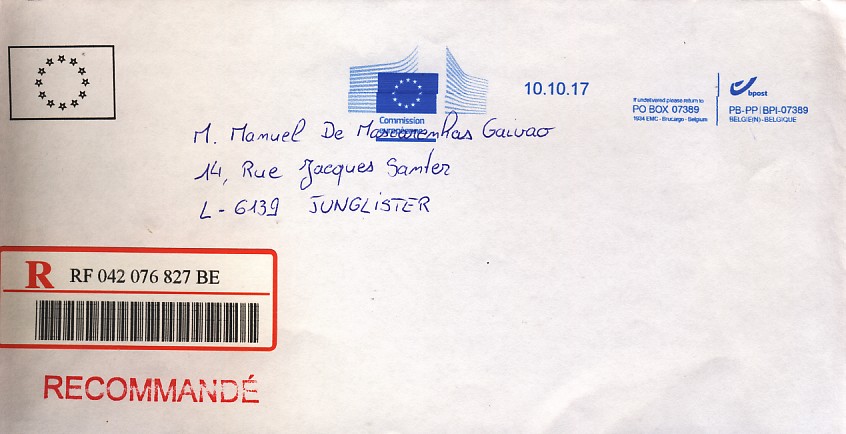 Commission
européenne
10.10.17
If undelivered please return to
PO BOX 07389
1934 EMC - Brucargo - Belgium
bpost
PB-PP | BPI-07389
BELGIE(N) - BELGIQUE
M. Manuel De Mascarenhas Gaivao
14, Rue Jacques Santer
L - 6139 JUNGLISTER
R RF 042 076 827 BE
RECOMMANDÉ